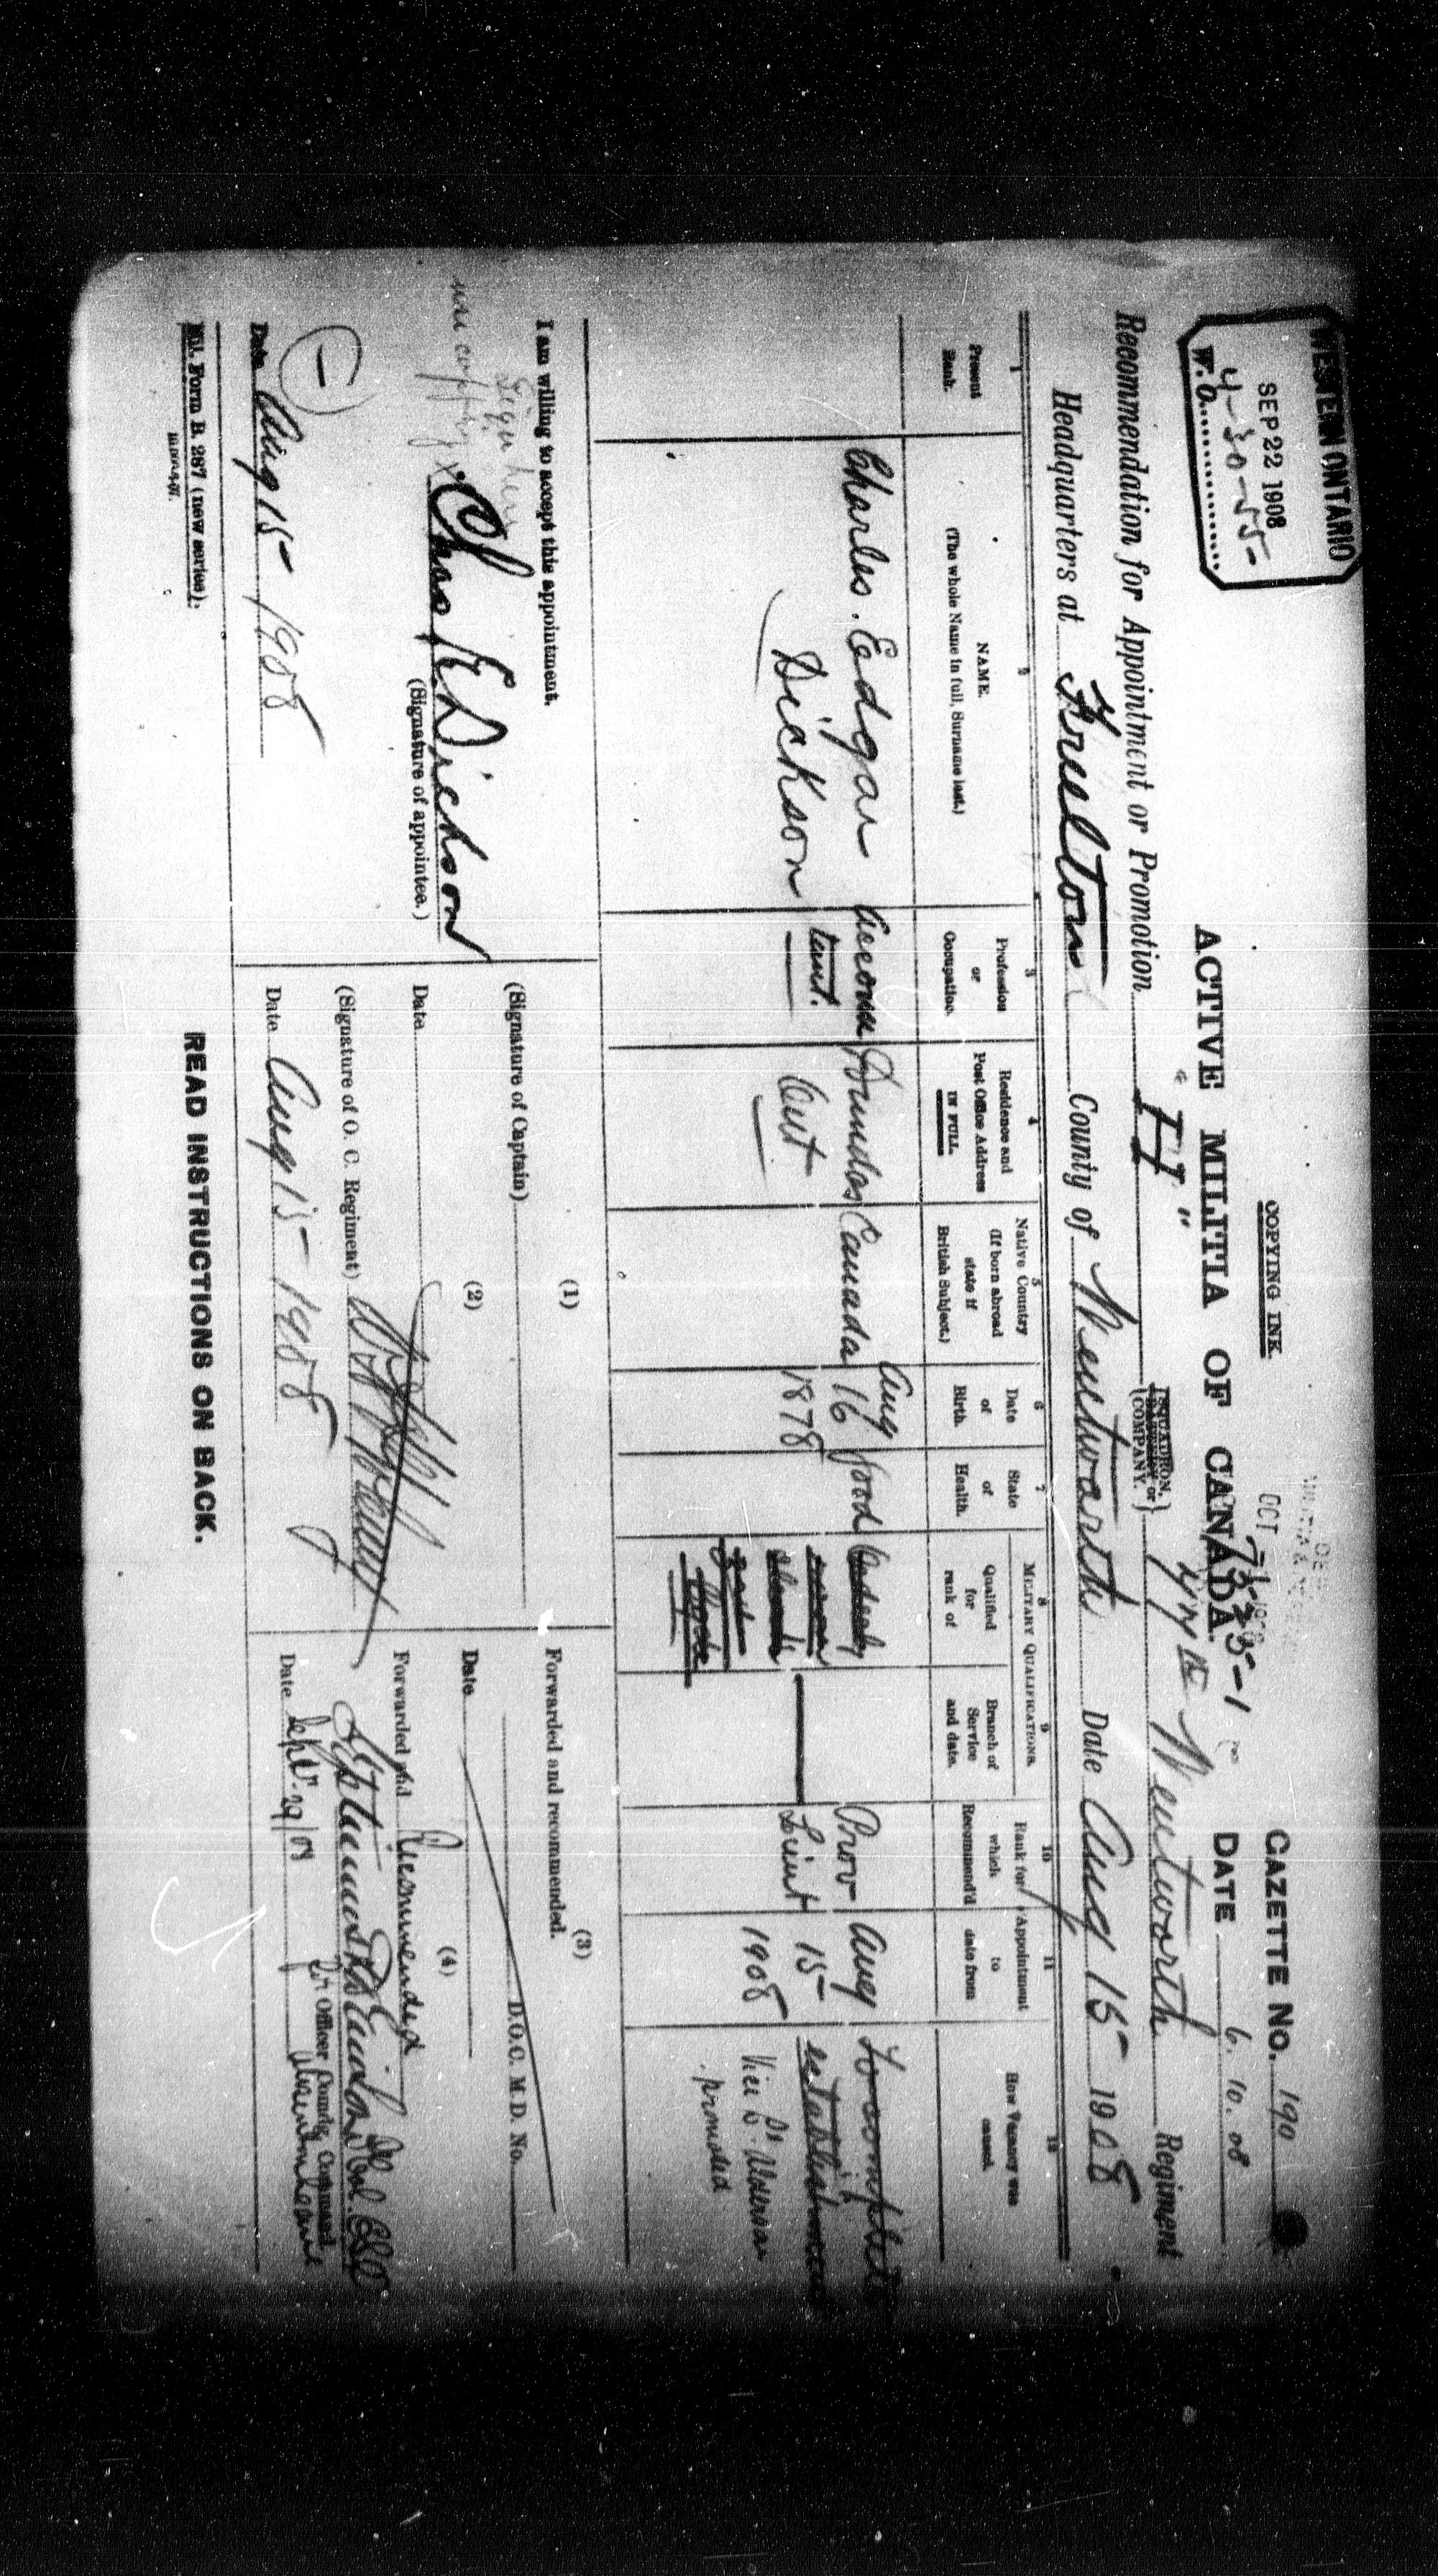 WESTERN ONTARIO
SEP 22 1908
4-30-55-
W.O.
COPYING INK.
GAZETTE NO. 190
DATE 6. 10. 08
OCT
ACTIVE MILITIA OF CANADA.
Recommendation for Appointment or Promotion "H" SQUADRON, BATTERY or COMPANY. 77th Wentworth Regiment
Headquarters at Freelton County of Wentworth Date Aug 15- 1908
1
Present Rank.
2
NAME.
(The whole Name in full, Surname last.)
3
Profession or Occupation.
4
Residence and Post Office Address IN FULL.
5
Native Country (If born abroad state if British Subject.)
6
Date of Birth.
7
State of Health.
MILITARY QUALIFICATIONS.
8
Qualified for rank of
9
Branch of Service and date.
10
Rank for which Recommend'd
11
Appointment to date from
12
How Vacancy was caused.
Charles. Edgar Dickson
Accountant.
Dundas Ont
Canada
Aug 16 1878
Good
Prov Lieut
Aug 15- 1908
To complete establishment
Vice
promoted
I am willing to accept this appointment.
Sign here
Chas E Dickson
(Signature of appointee.)
Date Aug 15- 1908
(1)
(Signature of Captain)
Date
(2)
(Signature of O. C. Regiment)
Date Aug 15- 1908
(3)
Forwarded and recommended.
D.O.C. M.D. No.
Date
(4)
Forwarded and Recommended
for Officer Comdg. Command
Date Sept. 29/08
Mil. Form B. 287 (new series).
READ INSTRUCTIONS ON BACK.